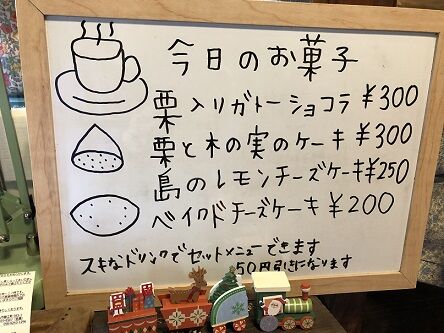 今日のお菓子
栗入りガトーショコラ ¥300
栗と木の実のケーキ ¥300
島のレモンチーズケーキ¥250
ベイクドチーズケーキ ¥200
スキなドリンクでセットメニューできます
50円引きになります